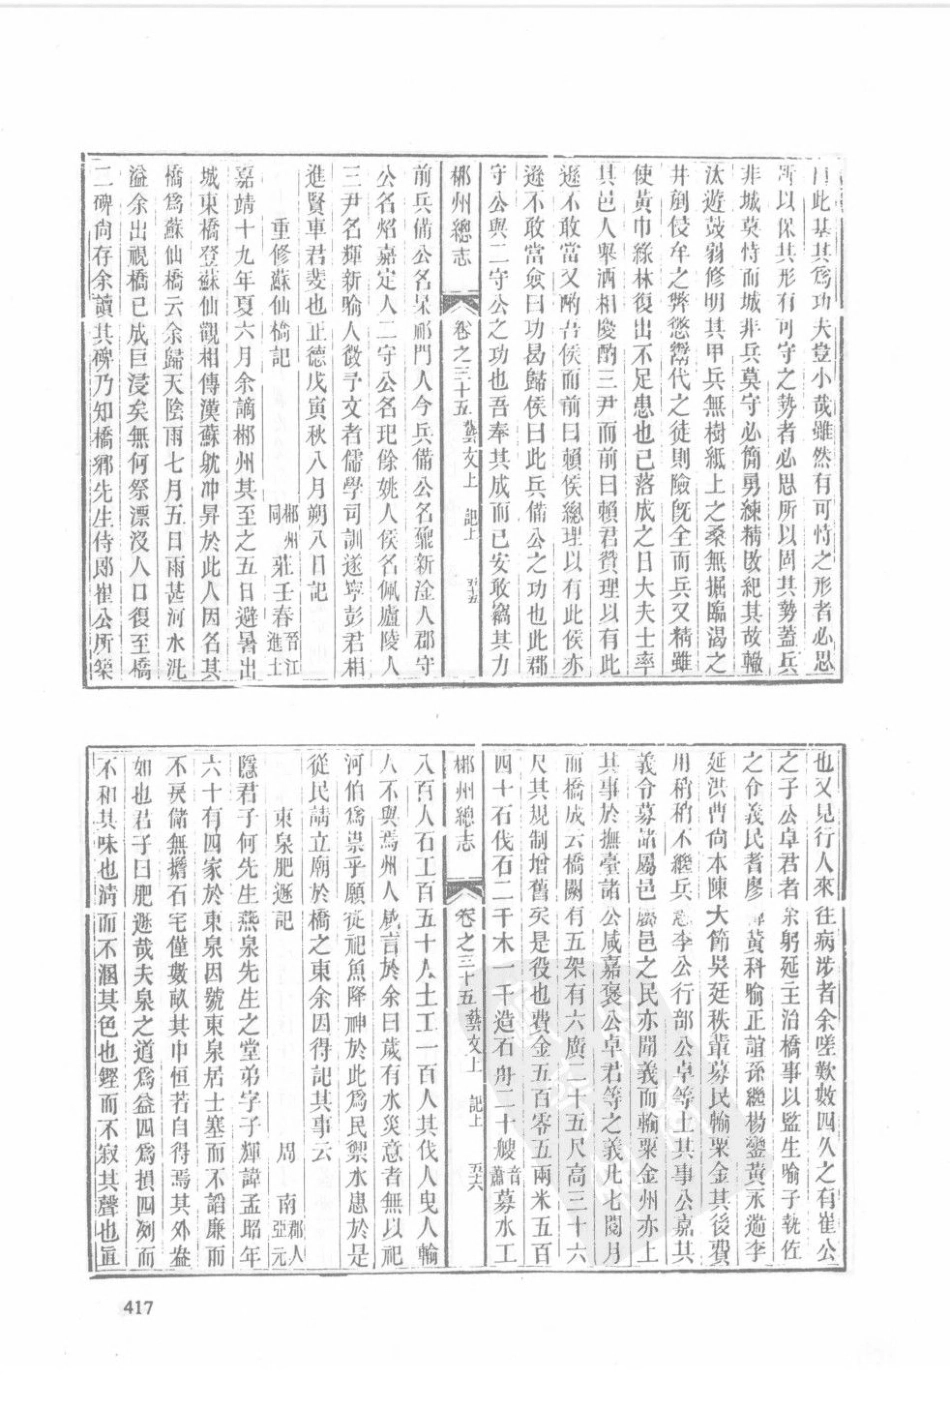 此基其爲功大豈小哉雖然有可恃之形者必思
所以保其形有可守之勢者必思所以固其勢蓋兵
非城莫恃而城非兵莫守必簡勇練精敗紀其故轍
汰遊茲弱修明其甲兵無樹紙上之桑無掘臨渴之
井剷侵牟之弊懲鬻代之徒則險旣全而兵又精雖
使黃巾綠林復出不足患也已落成之日大夫士率
其邑人舉酒相慶酌三尹而前曰賴君贊理以有此
遜不敢當又酌昔侯而前曰賴侯總理以有此侯亦
遜不敢當僉曰功曷歸侯曰此兵備公之功也此郡
守公與二守公之功也吾奉其成而已安敢竊其力
郴州總志 卷之三十五 藝文上 記上 五十五
前兵備公名杲祁門人今兵備公名巍新淦人郡守
公名焰嘉定人二守公名玘餘姚人侯名佩廬陵人
三尹名輝新喻人徵予文者儒學司訓遂寧彭君相
進賢車君斐也正德戊寅秋八月朔八日記
重修蘇仙橋記 郴州同 莊壬春 晉江進士
嘉靖十九年夏六月余謫郴州其至之五日避暑出
城東橋登蘇仙觀相傳漢蘇躭冲昇於此人因名其
橋爲蘇仙橋云余歸天陰雨七月五日雨甚河水汎
溢余出視橋已成巨浸矣無何祭漂沒人口復至橋
二碑尙存余讀其碑乃知橋鄉先生侍郎崔公所築
也又見行人來往病涉者余嗟歎數四久之有崔公
之子公卓君者余躬延主治橋事以監生喻子執佐
之介義民耆廖 黃科喻正誼孫繼楊鑾黃永逌李
延洪曹尙本陳大節吳廷秩輩募民輸粟金其後費
用稍稍不繼兵憲李公行部公卓等上其事公嘉其
義令募諸屬邑屬邑之民亦聞義而輸粟金州亦上
其事於撫臺諸公咸嘉褒公卓君等之義凡七閱月
而橋成云橋闕有五架有六廣二十五尺高三十六
尺其規制增舊矣是役也費金五百零五兩米五百
四十石伐石二千木一千造石舟二十艘音蕭募水工
郴州總志 卷之三十五 藝文上 記上 五十六
八百人石工百五十人土工一百人其伐人曳人輸
人不與焉州人咸言於余曰歲有水災意者無以祀
河伯爲祟乎願從祀魚降神於此爲民禦水患於是
從民請立廟於橋之東余因得記其事云
東泉肥遯記 周南 郡人亞元
隱君子何先生燕泉先生之堂弟字子輝諱孟昭年
六十有四家於東泉因號東泉居士塞而不謟廉而
不戾儲無擔石宅僅數畝其中恒若自得焉其外盎
如也君子曰肥遯哉夫泉之道爲益四爲損四冽而
不和其味也淸而不溷其色也鏗而不寂其聲也直
417